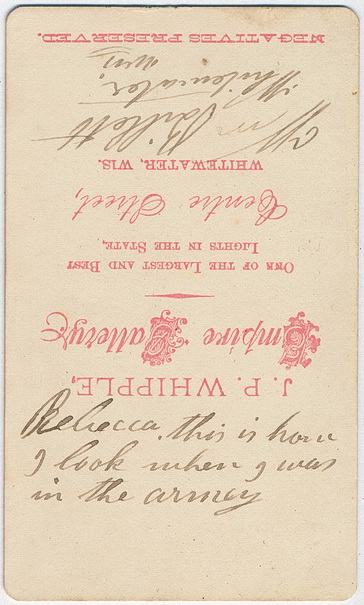 J. P. WHIPPLE,
Empire Gallery
ONE OF THE LARGEST AND BEST
LIGHTS IN THE STATE,
Centre Street,
WHITEWATER, WIS.
Wm
Whitewater,
Wis
NEGATIVES PRESERVED.
Rebecca, this is how
I look when I was
in the armey